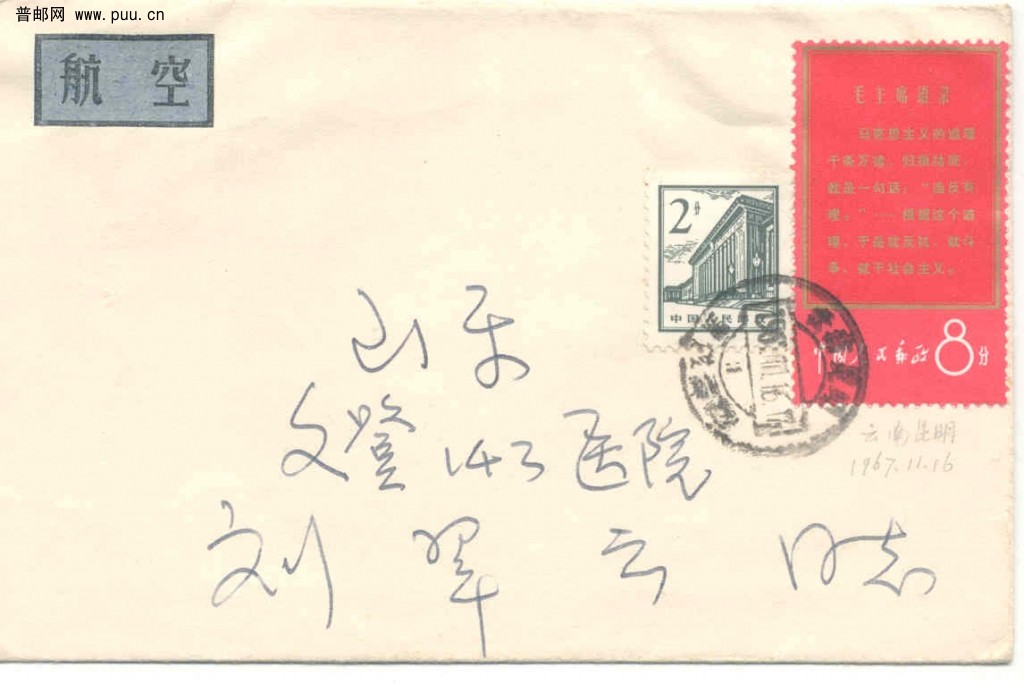 普邮网 www.puu.cn
航空
毛主席语录
马克思主义的道理
千条万绪,归根结底,
就是一句话:“造反有
理。”……根据这个道
理,于是就反抗,就斗
争,就干社会主义。
中国人民邮政 8分
2分
中国人民邮政
山东
文登 142 医院
刘翠云同志
云南昆明
1967.11.16